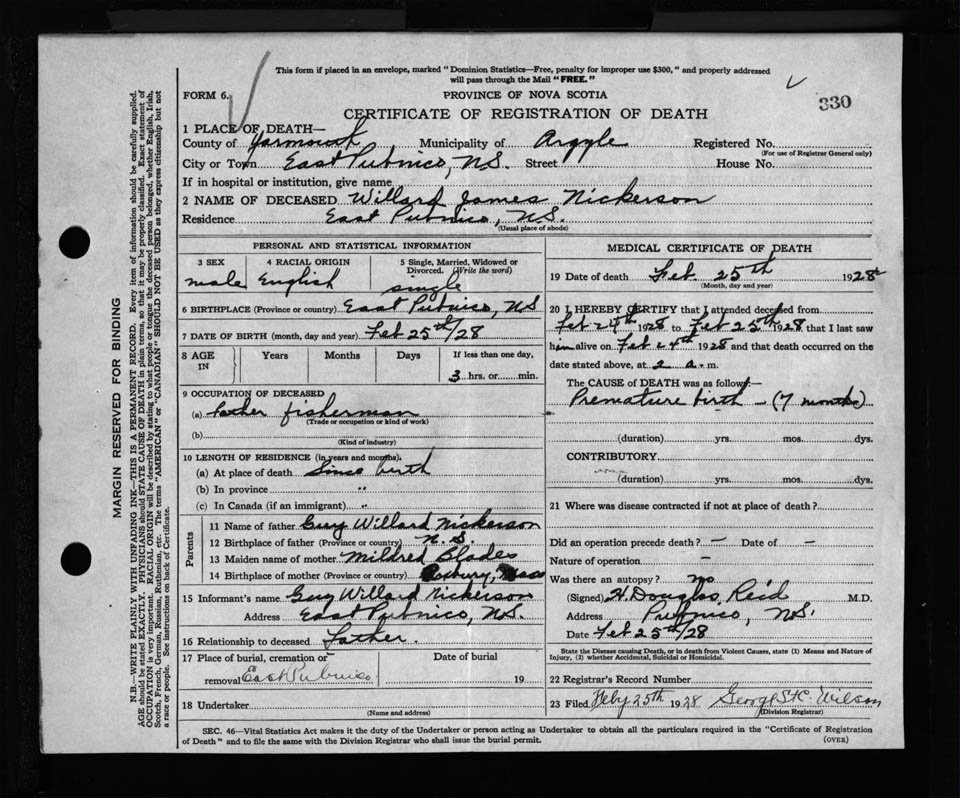 This form if placed in an envelope, marked "Dominion Statistics—Free, penalty for improper use $300," and properly addressed
will pass through the Mail "FREE."
FORM 6.
PROVINCE OF NOVA SCOTIA
330
CERTIFICATE OF REGISTRATION OF DEATH
1 PLACE OF DEATH—
County of Yarmouth Municipality of Argyle Registered No.
(For use of Registrar General only)
City or Town East Pubnico, N.S. Street House No.
If in hospital or institution, give name
2 NAME OF DECEASED Willard James Nickerson
Residence East Pubnico, N.S.
(Usual place of abode)
PERSONAL AND STATISTICAL INFORMATION
3 SEX 4 RACIAL ORIGIN 5 Single, Married, Widowed or Divorced. (Write the word)
male English single
6 BIRTHPLACE (Province or country) East Pubnico, NS
7 DATE OF BIRTH (month, day and year) Feb 25th/28
8 AGE IN Years Months Days If less than one day,
3 hrs. or min.
9 OCCUPATION OF DECEASED
(a) father fisherman
(Trade or occupation or kind of work)
(b)
(Kind of industry)
10 LENGTH OF RESIDENCE (in years and months).
(a) At place of death Since birth
(b) In province "
(c) In Canada (if an immigrant) "
Parents
11 Name of father Guy Willard Nickerson
12 Birthplace of father (Province or country) N.S.
13 Maiden name of mother Mildred Blades
14 Birthplace of mother (Province or country) Roxbury, Mass
15 Informant's name Guy Willard Nickerson
Address East Pubnico, N.S.
16 Relationship to deceased father.
17 Place of burial, cremation or Date of burial
removal East Pubnico 19
18 Undertaker
(Name and address)
MEDICAL CERTIFICATE OF DEATH
19 Date of death Feb 25th 1928
(Month, day and year)
20 I HEREBY CERTIFY that I attended deceased from
Feb 24th 1928 to Feb 25th 1928 that I last saw
him alive on Feb 24th 1928 and that death occurred on the
date stated above, at 2 a.m.
The CAUSE of DEATH was as follows:—
Premature birth — (7 months)
(duration) yrs. mos. dys.
CONTRIBUTORY
(duration) yrs. mos. dys.
21 Where was disease contracted if not at place of death?
Did an operation precede death? — Date of —
Nature of operation —
Was there an autopsy? no
(Signed) H. Douglas Reid M.D.
Address Pubnico, N.S.
Date Feb 25th/28
State the Disease causing Death, or in death from Violent Causes, state (1) Means and Nature of
Injury, (2) whether Accidental, Suicidal or Homicidal.
22 Registrar's Record Number
23 Filed Feby 25th 1928 George St C. Wilson
(Division Registrar)
SEC. 46—Vital Statistics Act makes it the duty of the Undertaker or person acting as Undertaker to obtain all the particulars required in the "Certificate of Registration
of Death" and to file the same with the Division Registrar who shall issue the burial permit.
(OVER)
MARGIN RESERVED FOR BINDING
N.B.—WRITE PLAINLY WITH UNFADING INK—THIS IS A PERMANENT RECORD. Every item of information should be carefully supplied.
AGE should be stated EXACTLY. PHYSICIANS should STATE CAUSE OF DEATH in plain terms, so that it may be properly classified. Exact statement of
OCCUPATION is very important. RACIAL ORIGIN will be described by stating to what people or tongue the deceased person belonged, whether English, Irish,
Scotch, French, German, Russian, Ruthenian, etc. The terms "AMERICAN" or "CANADIAN" SHOULD NOT BE USED as they express citizenship but not
a race or people. See instructions on back of Certificate.